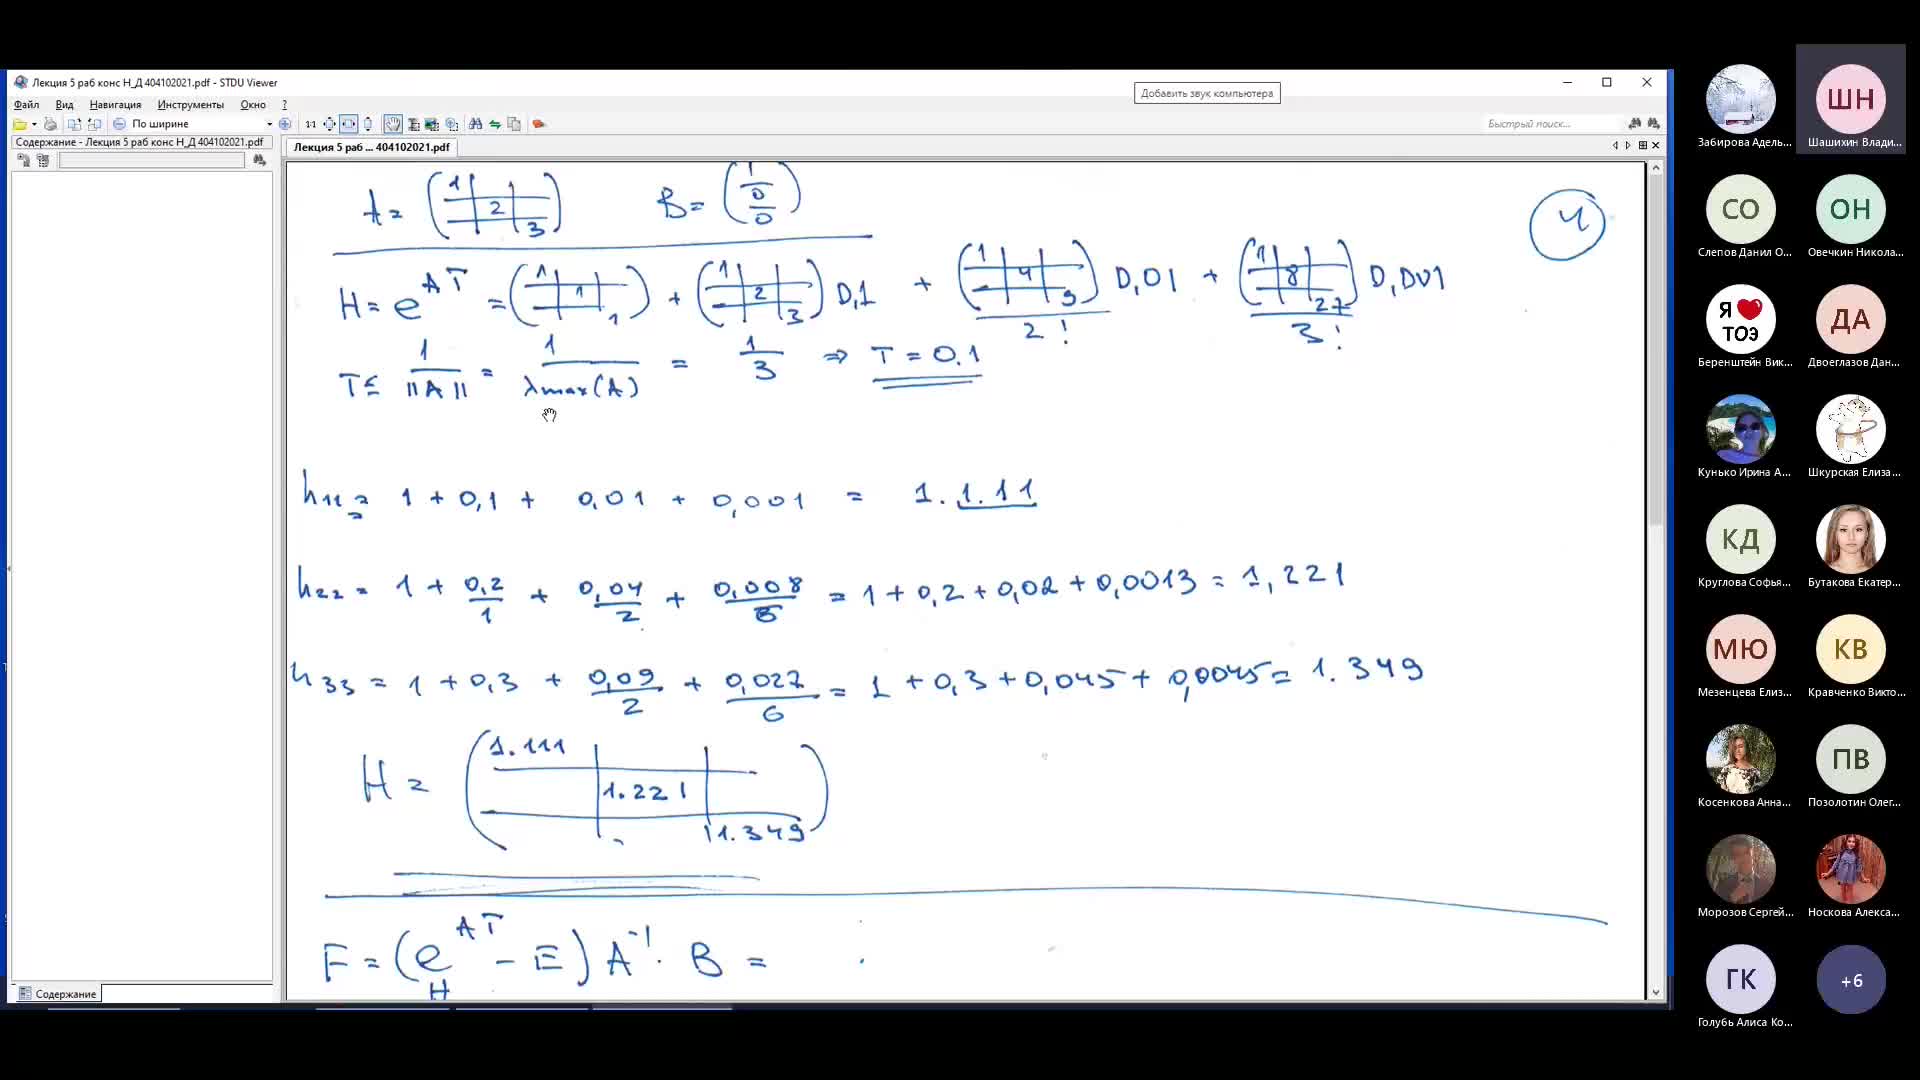 Лекция 5 раб конс Н_Д 404102021.pdf - STDU Viewer
Добавить звук компьютера
Файл Вид Навигация Инструменты Окно ?
По ширине
1:1
Быстрый поиск...
Содержание - Лекция 5 раб конс Н_Д 404102021.pdf
Лекция 5 раб ... 404102021.pdf
A = (1 2 3) B = (1 0 0)
4
H = e^{AT} = (1 1 1) + (1 2 3) 0,1 + (1 4 9)/2! 0,01 + (1 8 27)/3! 0,001
T ≤ 1/||A|| = 1/λmax(A) = 1/3 ⇒ T = 0.1
h11 = 1 + 0,1 + 0,01 + 0,001 = 1.1.11
h22 = 1 + 0.2/1 + 0,04/2 + 0,008/6 = 1 + 0,2 + 0,02 + 0,0013 = 1,221
h33 = 1 + 0,3 + 0,09/2 + 0,027/6 = 1 + 0,3 + 0,045 + 0,0045 = 1.349
H = (1.111 1.221 1.349)
F = (e^{AT} - E) A^{-1} · B =
H
Содержание
ШН
Забирова Адель...
Шашихин Влади...
СО
ОН
Слепов Данил О...
Овечкин Никола...
Я ❤ ТОЭ
ДА
Беренштейн Вик...
Двоеглазов Дан...
Кунько Ирина А...
Шкурская Елиза...
КД
Круглова Софья...
Бутакова Екатер...
МЮ
КВ
Мезенцева Елиз...
Кравченко Викто...
ПВ
Косенкова Анна...
Позолотин Олег...
Морозов Сергей...
Носкова Алекса...
ГК
+6
Голубь Алиса Ко...